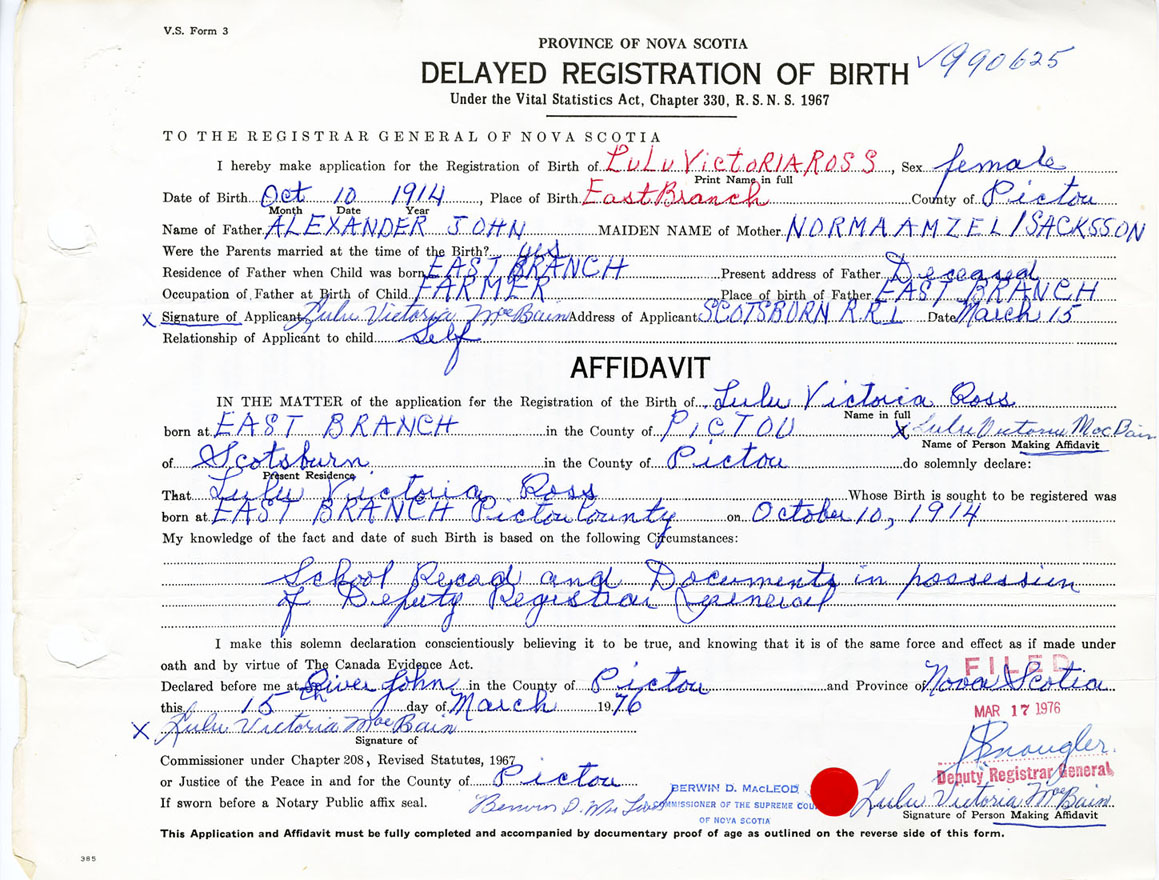 V.S. Form 3
PROVINCE OF NOVA SCOTIA
DELAYED REGISTRATION OF BIRTH ✓990625
Under the Vital Statistics Act, Chapter 330, R. S. N. S. 1967
TO THE REGISTRAR GENERAL OF NOVA SCOTIA
I hereby make application for the Registration of Birth of LuLu VictoRIA ROSS, Sex female
Print Name in full
Date of Birth Oct 10 1914, Place of Birth East Branch County of Pictou
Month Date Year
Name of Father ALEXANDER JOHN MAIDEN NAME of Mother NORMA AMZEL ISACKSSON
Were the Parents married at the time of the Birth? yes
Residence of Father when Child was born EAST BRANCH Present address of Father Deceased
Occupation of Father at Birth of Child FARMER Place of birth of Father EAST BRANCH
X Signature of Applicant Lulu Victoria MacBain Address of Applicant SCOTSBURN R.R.1 Date March 15
Relationship of Applicant to child Self
AFFIDAVIT
IN THE MATTER of the application for the Registration of the Birth of Lulu Victoria Ross
Name in full
born at EAST BRANCH in the County of PICTOU X Lulu Victoria MacBain
Name of Person Making Affidavit
of Scotsburn in the County of Pictou do solemnly declare:
Present Residence
That Lulu Victoria Ross Whose Birth is sought to be registered was
born at EAST BRANCH Pictou County on October 10, 1914
My knowledge of the fact and date of such Birth is based on the following Circumstances:
School Record and Documents in possession
of Deputy Registrar General
I make this solemn declaration conscientiously believing it to be true, and knowing that it is of the same force and effect as if made under
oath and by virtue of The Canada Evidence Act.
FILED
Declared before me at River John in the County of Pictou and Province of Nova Scotia
this 15th day of March 1976
MAR 17 1976
X Lulu Victoria MacBain
Signature of
Commissioner under Chapter 208, Revised Statutes, 1967
Deputy Registrar General
or Justice of the Peace in and for the County of Pictou
BERWIN D. MacLEOD
If sworn before a Notary Public affix seal. Berwin D. MacLeod COMMISSIONER OF THE SUPREME COU Lulu Victoria MacBain
OF NOVA SCOTIA
Signature of Person Making Affidavit
This Application and Affidavit must be fully completed and accompanied by documentary proof of age as outlined on the reverse side of this form.
385